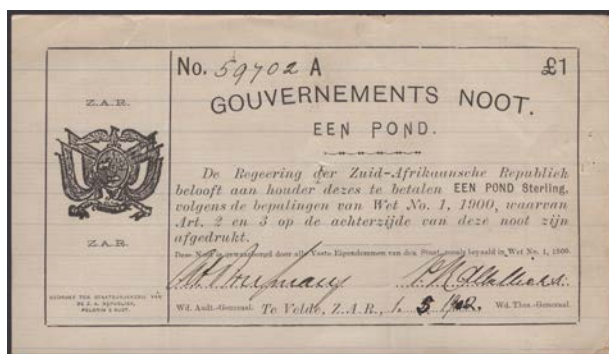 No. 59702 A £1
GOUVERNEMENTS NOOT.
EEN POND.
De Regeering der Zuid-Afrikaansche Republiek
belooft aan houder dezes te betalen EEN POND Sterling,
volgens de bepalingen van Wet No. 1, 1900, waarvan
Art. 2 en 3 op de achterzijde van deze noot zijn
afgedrukt.
Deze Noot is gewaarborgd door alle Vaste Eigendommen van den Staat, zooals bepaald in Wet No. 1, 1900.
Wd. Audt.-Generaal. Te Velde, Z.A.R., 1. 5 1902. Wd. Thes.-Generaal.
Z.A.R.
Z.A.R.
GEDRUKT TER STAATSDRUKKERIJ VAN
DE Z. A. REPUBLIEK,